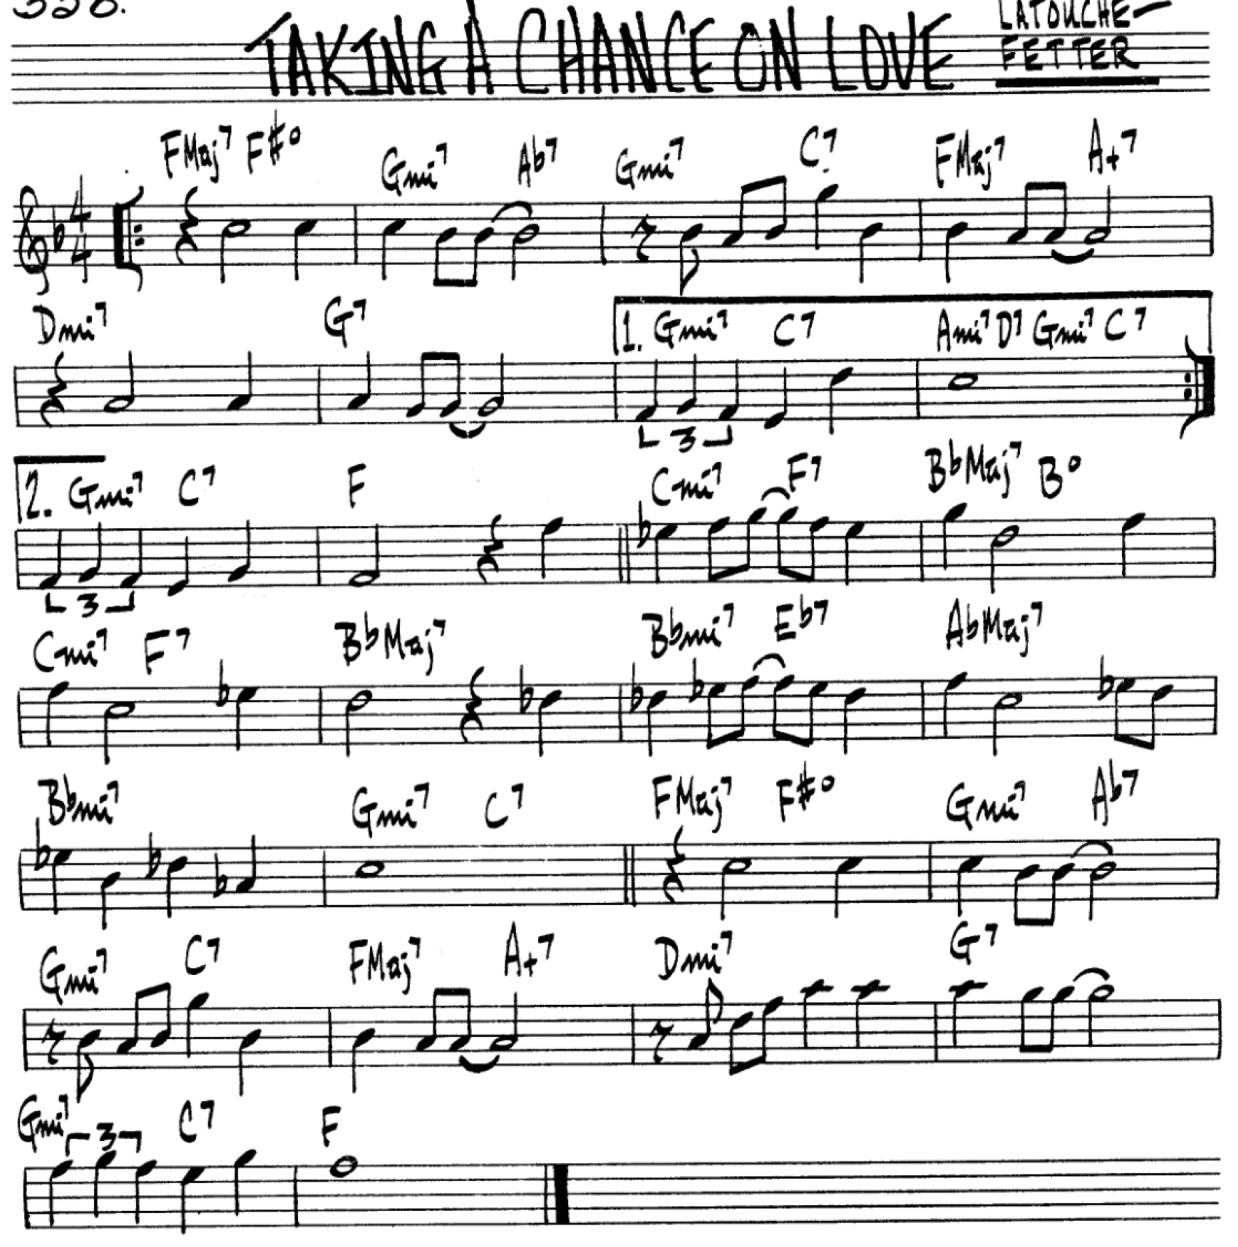 338.
TAKING A CHANCE ON LOVE
LATOUCHE-
FETTER
FMaj7 F#o Gmi7 Ab7 Gmi7 C7 FMaj7 A+7
4
4
Dmi7 G7 1. Gmi7 C7 Ami7 D7 Gmi7 C7
3
2. Gmi7 C7 F Cmi7 F7 BbMaj7 Bo
3
Cmi7 F7 BbMaj7 Bbmi7 Eb7 AbMaj7
Bbmi7 Gmi7 C7 FMaj7 F#o Gmi7 Ab7
Gmi7 C7 FMaj7 A+7 Dmi7 G7
Gmi7 3 C7 F